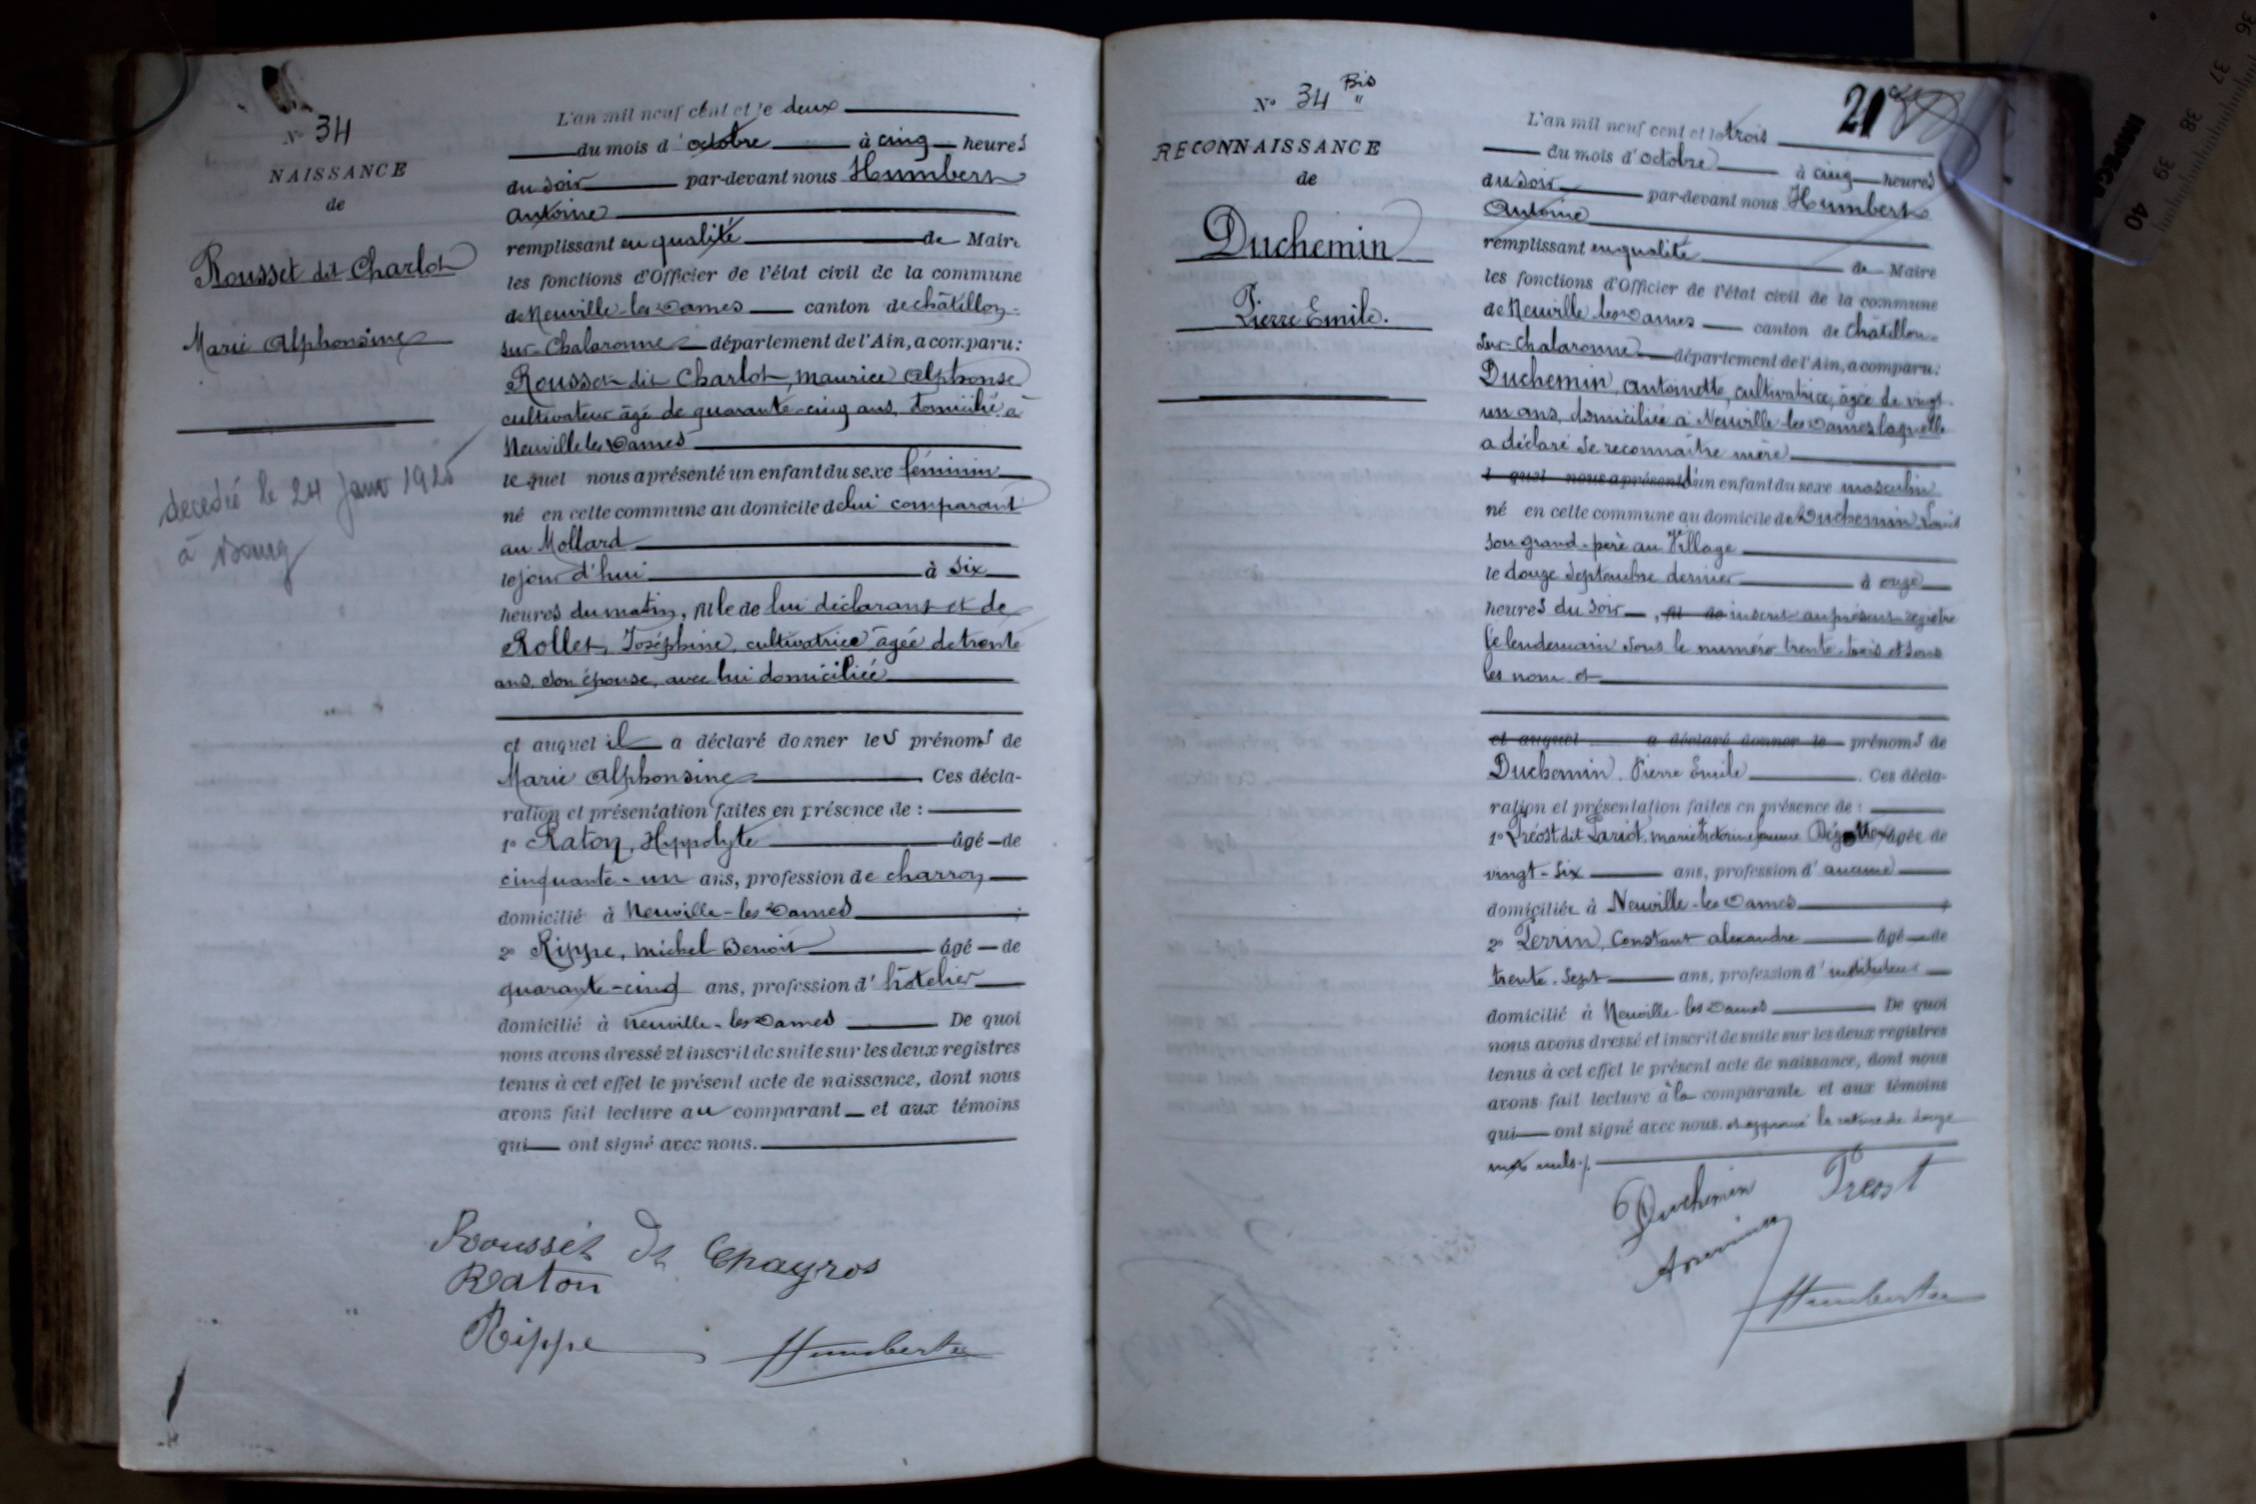 N° 34
NAISSANCE
de
Rousset dit Charlot
Marie Alphonsine
décédée le 24 Janv 1925
à Bourg
L'an mil neuf cent et le deux
du mois d'octobre à cinq heures
du soir par-devant nous Humbert
Antoine
remplissant en qualité de Maire
les fonctions d'Officier de l'état civil de la commune
de Neuville-les-Dames canton de Châtillon-
sur-Chalaronne département de l'Ain, a comparu:
Rousset dit Charlot, Maurice Alphonse
cultivateur âgé de quarante-cinq ans, domicilié à
Neuville les Dames
lequel nous a présenté un enfant du sexe féminin
né en cette commune au domicile de lui comparant
au Mollard
le jour d'hui à six
heures du matin, fille de lui déclarant et de
Rollet, Joséphine, cultivatrice âgée de trente
ans, son épouse, avec lui domiciliée
et auquel il a déclaré donner les prénoms de
Marie Alphonsine Ces décla-
ration et présentation faites en présence de :
1° Raton, Hippolyte âgé de
cinquante-un ans, profession de charron
domicilié à Neuville-les-Dames
2° Rippe, Michel Benoit âgé de
quarante-cinq ans, profession d'hôtelier
domicilié à Neuville-les-Dames De quoi
nous avons dressé et inscrit de suite sur les deux registres
tenus à cet effet le présent acte de naissance, dont nous
avons fait lecture au comparant et aux témoins
qui ont signé avec nous.
Rousset dt
Raton
Rippe Humbert
N° 34 Bis
"
RECONNAISSANCE
de
Duchemin
Pierre Emile.
21
L'an mil neuf cent et le trois
du mois d'octobre à cinq heures
du soir par-devant nous Humbert
Antoine
remplissant en qualité de Maire
les fonctions d'Officier de l'état civil de la commune
de Neuville les Dames canton de Châtillon-
sur-Chalaronne département de l'Ain, a comparu:
Duchemin, Antoinette, cultivatrice, âgée de vingt-
un ans, domiciliée à Neuville-les-Dames laquelle
a déclaré se reconnaître mère
l quel nous a présenté d'un enfant du sexe masculin
né en cette commune au domicile de Duchemin Louis
son grand-père au Village
le douze Septembre dernier à onze
heures du soir, fil de inscrit au présent registre
le lendemain sous le numéro trente-trois et sous
les nom et
et auquel a déclaré donner le prénoms de
Duchemin, Pierre Emile. Ces décla-
ration et présentation faites en présence de :
1° Préost dit Pariot, Marie Victorine femme âgée de
vingt-six ans, profession d'aucune
domiciliée à Neuville-les-Dames
2° Perrin, Constant Alexandre âgé de
trente-sept ans, profession d'instituteur
domicilié à Neuville-les-Dames De quoi
nous avons dressé et inscrit de suite sur les deux registres
tenus à cet effet le présent acte de naissance, dont nous
avons fait lecture à la comparante et aux témoins
qui ont signé avec nous. et approuvé la rature de douze
mots nuls./.
Duchemin Préost
Humbert
36
37
38
39
40